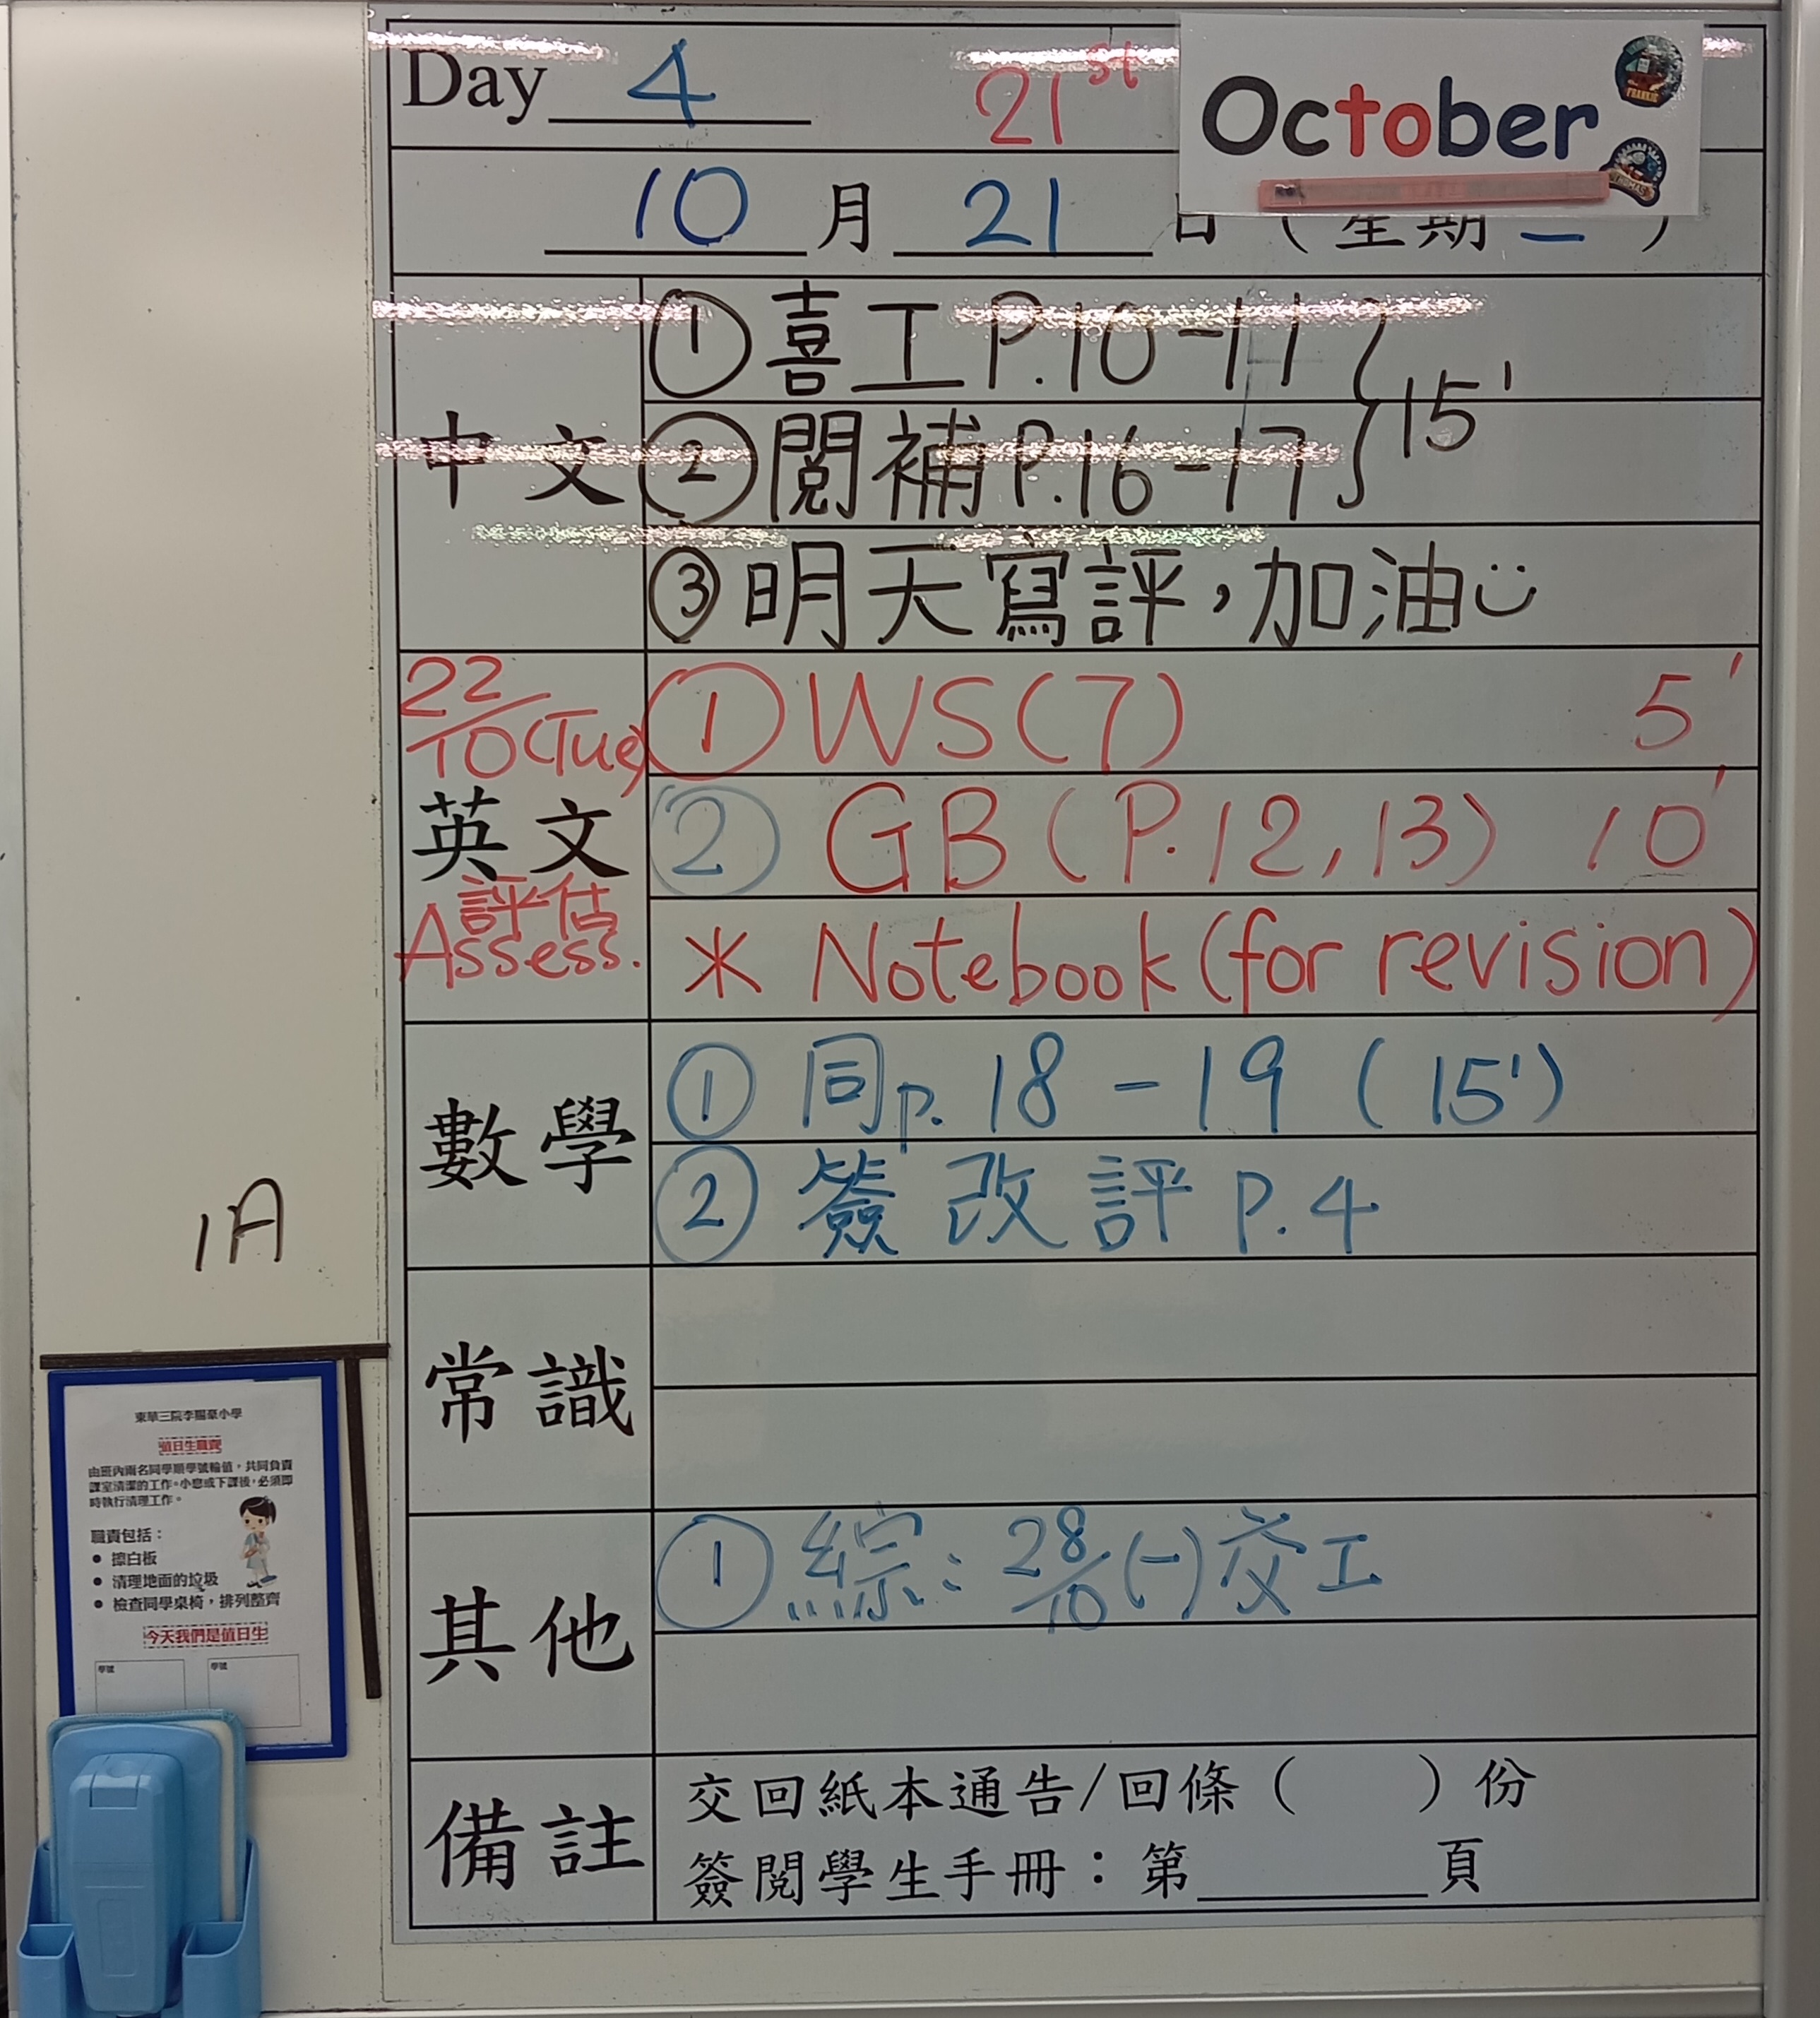 Day 4 21st October
10 月 21 日 ( 星期 一 )
中文
① 喜工 P.10-11
② 閱補 P.16-17
15'
③ 明天寫評，加油
22/10 (Tue)
英文
評估
Assess.
① WS(7) 5'
② GB (P.12, 13) 10'
* Notebook (for revision)
數學
① 同 p. 18 - 19 ( 15' )
② 簽改評 P.4
常識
其他
① 綜: 28/10 (一) 交工
備註
交回紙本通告/回條 ( ) 份
簽閱學生手冊：第______頁
1A
東華三院李賜豪小學
值日生職責
由班內兩名同學順學號輪值，共同負責
課室清潔的工作。小息或下課後，必須即
時執行清理工作。
職責包括：
● 擦白板
● 清理地面的垃圾
● 檢查同學桌椅，排列整齊
今天我們是值日生
學號 學號